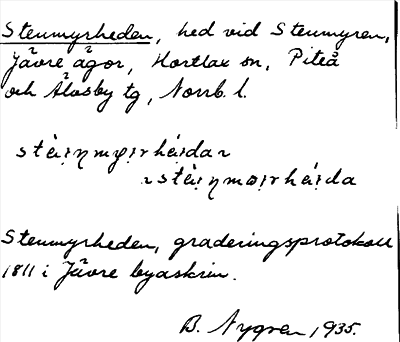 Stenmyrheden, hed vid Stenmyren,
Jävre ägor, Hortlax sn, Piteå
och Älvsby tg, Norrb. l.
~
Stenmyrheden, graderingsprotokoll
1811 i Jävre byaskrin.
B. Nygren 1935.